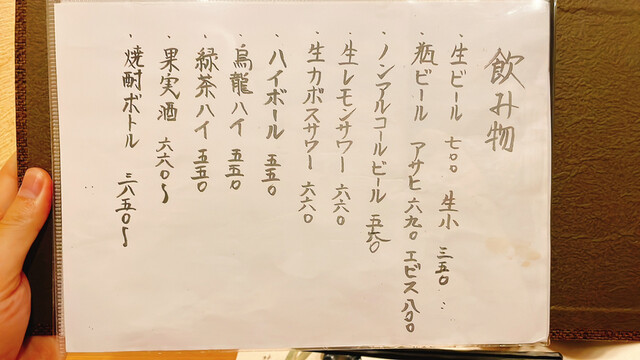 飲み物
・生ビール 七〇〇 生小 三五〇
・瓶ビール アサヒ 六九〇 エビス 八〇〇
・ノンアルコールビール 五五〇
・生レモンサワー 六六〇
・生カボスサワー 六六〇
・ハイボール 五五〇
・烏龍ハイ 五五〇
・緑茶ハイ 五五〇
・果実酒 六六〇〜
・焼酎ボトル 三八五〇〜